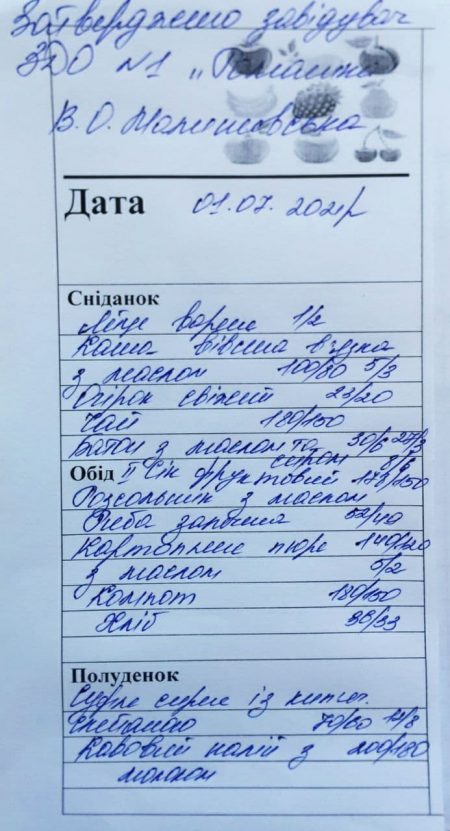 Затверджено завідувач
ЗДО №1 „Ромашка
В.О. Малишовська
Дата 01.07.2021р
Сніданок
Яйце варене 1/2
Каша вівсяна в'язка
з маслом 100/80 5/3
Огірок свіжий 23/20
Чай 180/150
Батон з маслом та 30/6
сиром 8/6
Обід II Сік фруктовий 173/150
Розсольник з маслом
Риба запечена 52/40
Картопляне пюре 140/120
з маслом 5/2
Компот 180/150
Хліб 36/33
Полуденок
Суфле сирне із
сметаною 70/60 14/8
Кавовий напій з 200/180
молоком